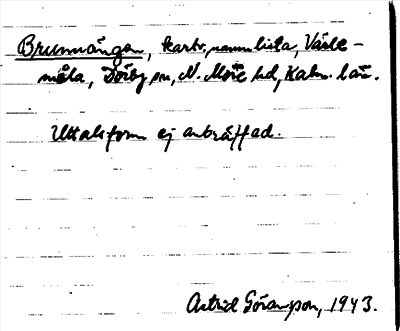 Brunnsängen, karbr, namnlista, Värle-
måla, Dörby sn, N. Möre hd, Kalm. län.
Uttalsform ej anträffad.
Astrid Göransson, 1943.